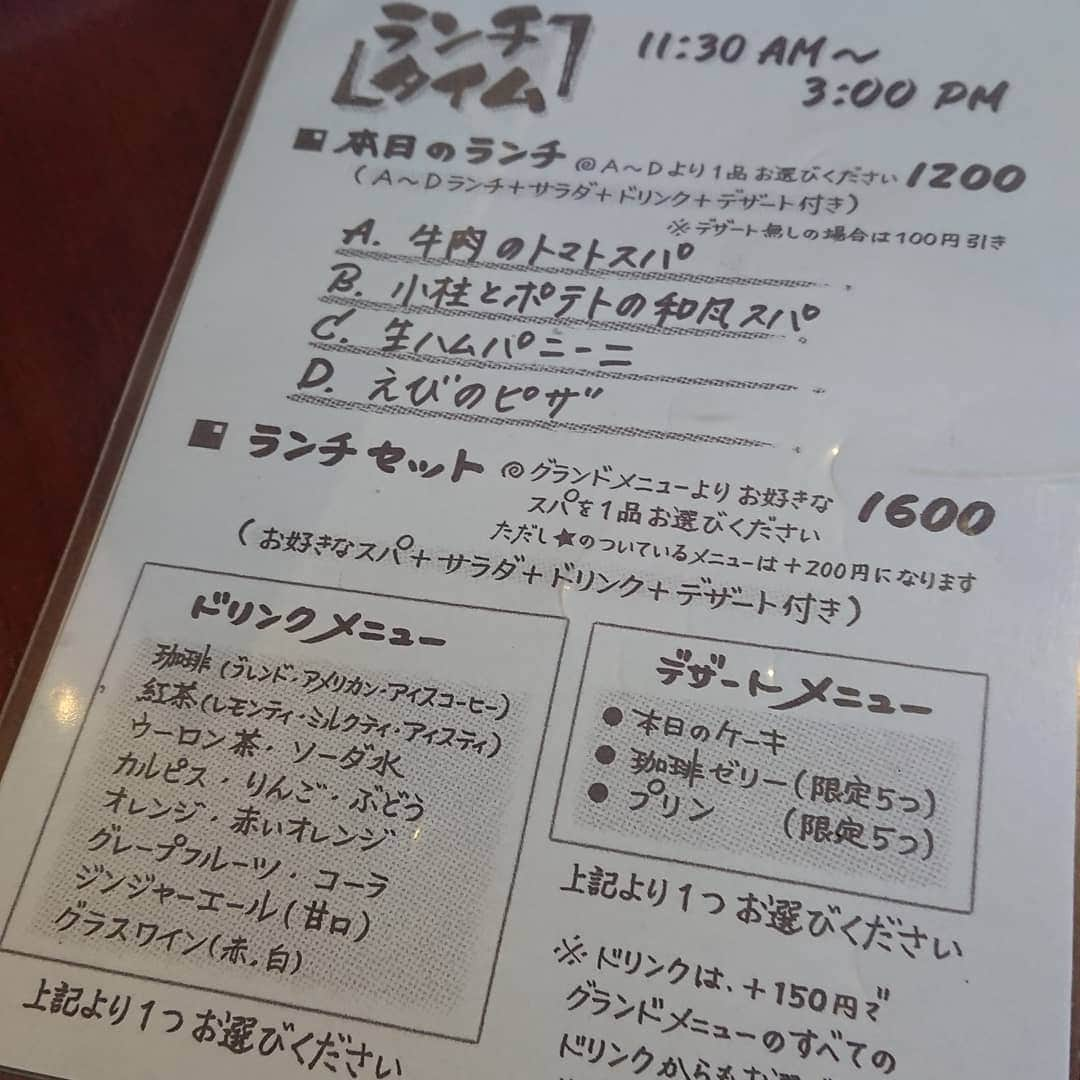 ランチ
タイム
11:30 AM～
3:00 PM
■ 本日のランチ @A～Dより1品お選びください 1200
(A～Dランチ+サラダ+ドリンク+デザート付き)
※デザート無しの場合は100円引き
A. 牛肉のトマトスパ
B. 小柱とポテトの和風スパ
C. 生ハムパニーニ
D. えびのピザ
■ ランチセット @グランドメニューよりお好きな 1600
スパを1品お選びください
ただし★のついているメニューは+200円になります
(お好きなスパ+サラダ+ドリンク+デザート付き)
ドリンクメニュー
珈琲(ブレンド・アメリカン・アイスコーヒー)
紅茶(レモンティ・ミルクティ・アイスティ)
ウーロン茶・ソーダ水
カルピス・りんご・ぶどう
オレンジ・赤いオレンジ
グレープフルーツ・コーラ
ジンジャーエール(甘口)
グラスワイン(赤,白)
上記より1つお選びください
デザートメニュー
●本日のケーキ
●珈琲ゼリー(限定5つ)
●プリン (限定5つ)
上記より1つお選びください
※ドリンクは、+150円で
グランドメニューのすべての
ドリンクからもお